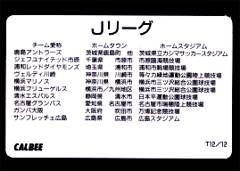 Jリーグ
チーム愛称 ホームタウン ホームスタジアム
鹿島アントラーズ 茨城県鹿島町 他 茨城県立カシマサッカースタジアム
ジェフユナイテッド市原 千葉県 市原市 市原臨海競技場
浦和レッドダイヤモンズ 埼玉県 浦和市 浦和市駒場競技場
ヴェルディ川崎 神奈川県 川崎市 等々力緑地運動公園陸上競技場
横浜マリノス 神奈川県 横浜市 三ツ沢公園球技場
横浜フリューゲルス 横浜市/九州地区 三ツ沢公園球技場 他
清水エスパルス 静岡県 清水市 日本平運動公園球技場
名古屋グランパス 愛知県 名古屋市 名古屋市瑞穂陸上競技場
ガンバ大阪 大阪府 吹田市 万博記念競技場
サンフレッチェ広島 広島県 広島市 広島スタジアム
CALBEE T12/12